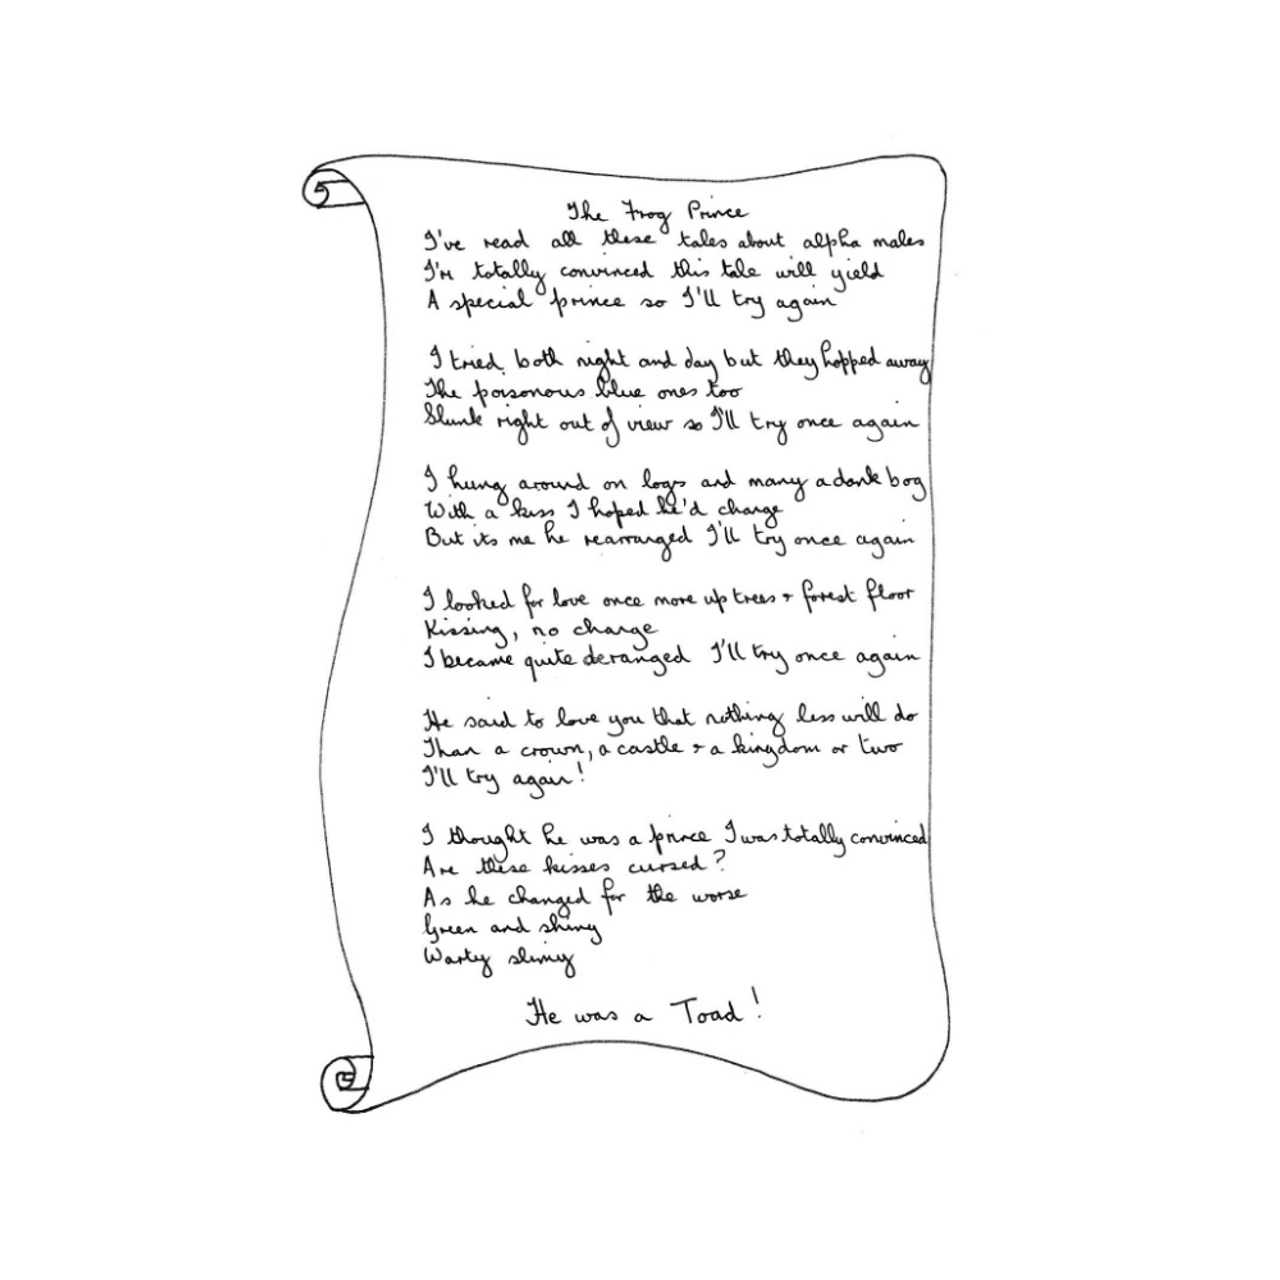 The Frog Prince
I've read all these tales about alpha males
I'm totally convinced this tale will yield
A special prince so I'll try again
I tried both night and day but they hopped away
The poisonous blue ones too
Slunk right out of view so I'll try once again
I hung around on logs and many a dank bog
With a kiss I hoped he'd change
But its me he rearranged I'll try once again
I looked for love once more up trees + forest floor
Kissing, no change
I became quite deranged I'll try once again
He said to love you that nothing less will do
Than a crown, a castle + a kingdom or two
I'll try again!
I thought he was a prince I was totally convinced
Are these kisses cursed?
As he changed for the worse
Green and shiny
Warty slimy
He was a Toad!